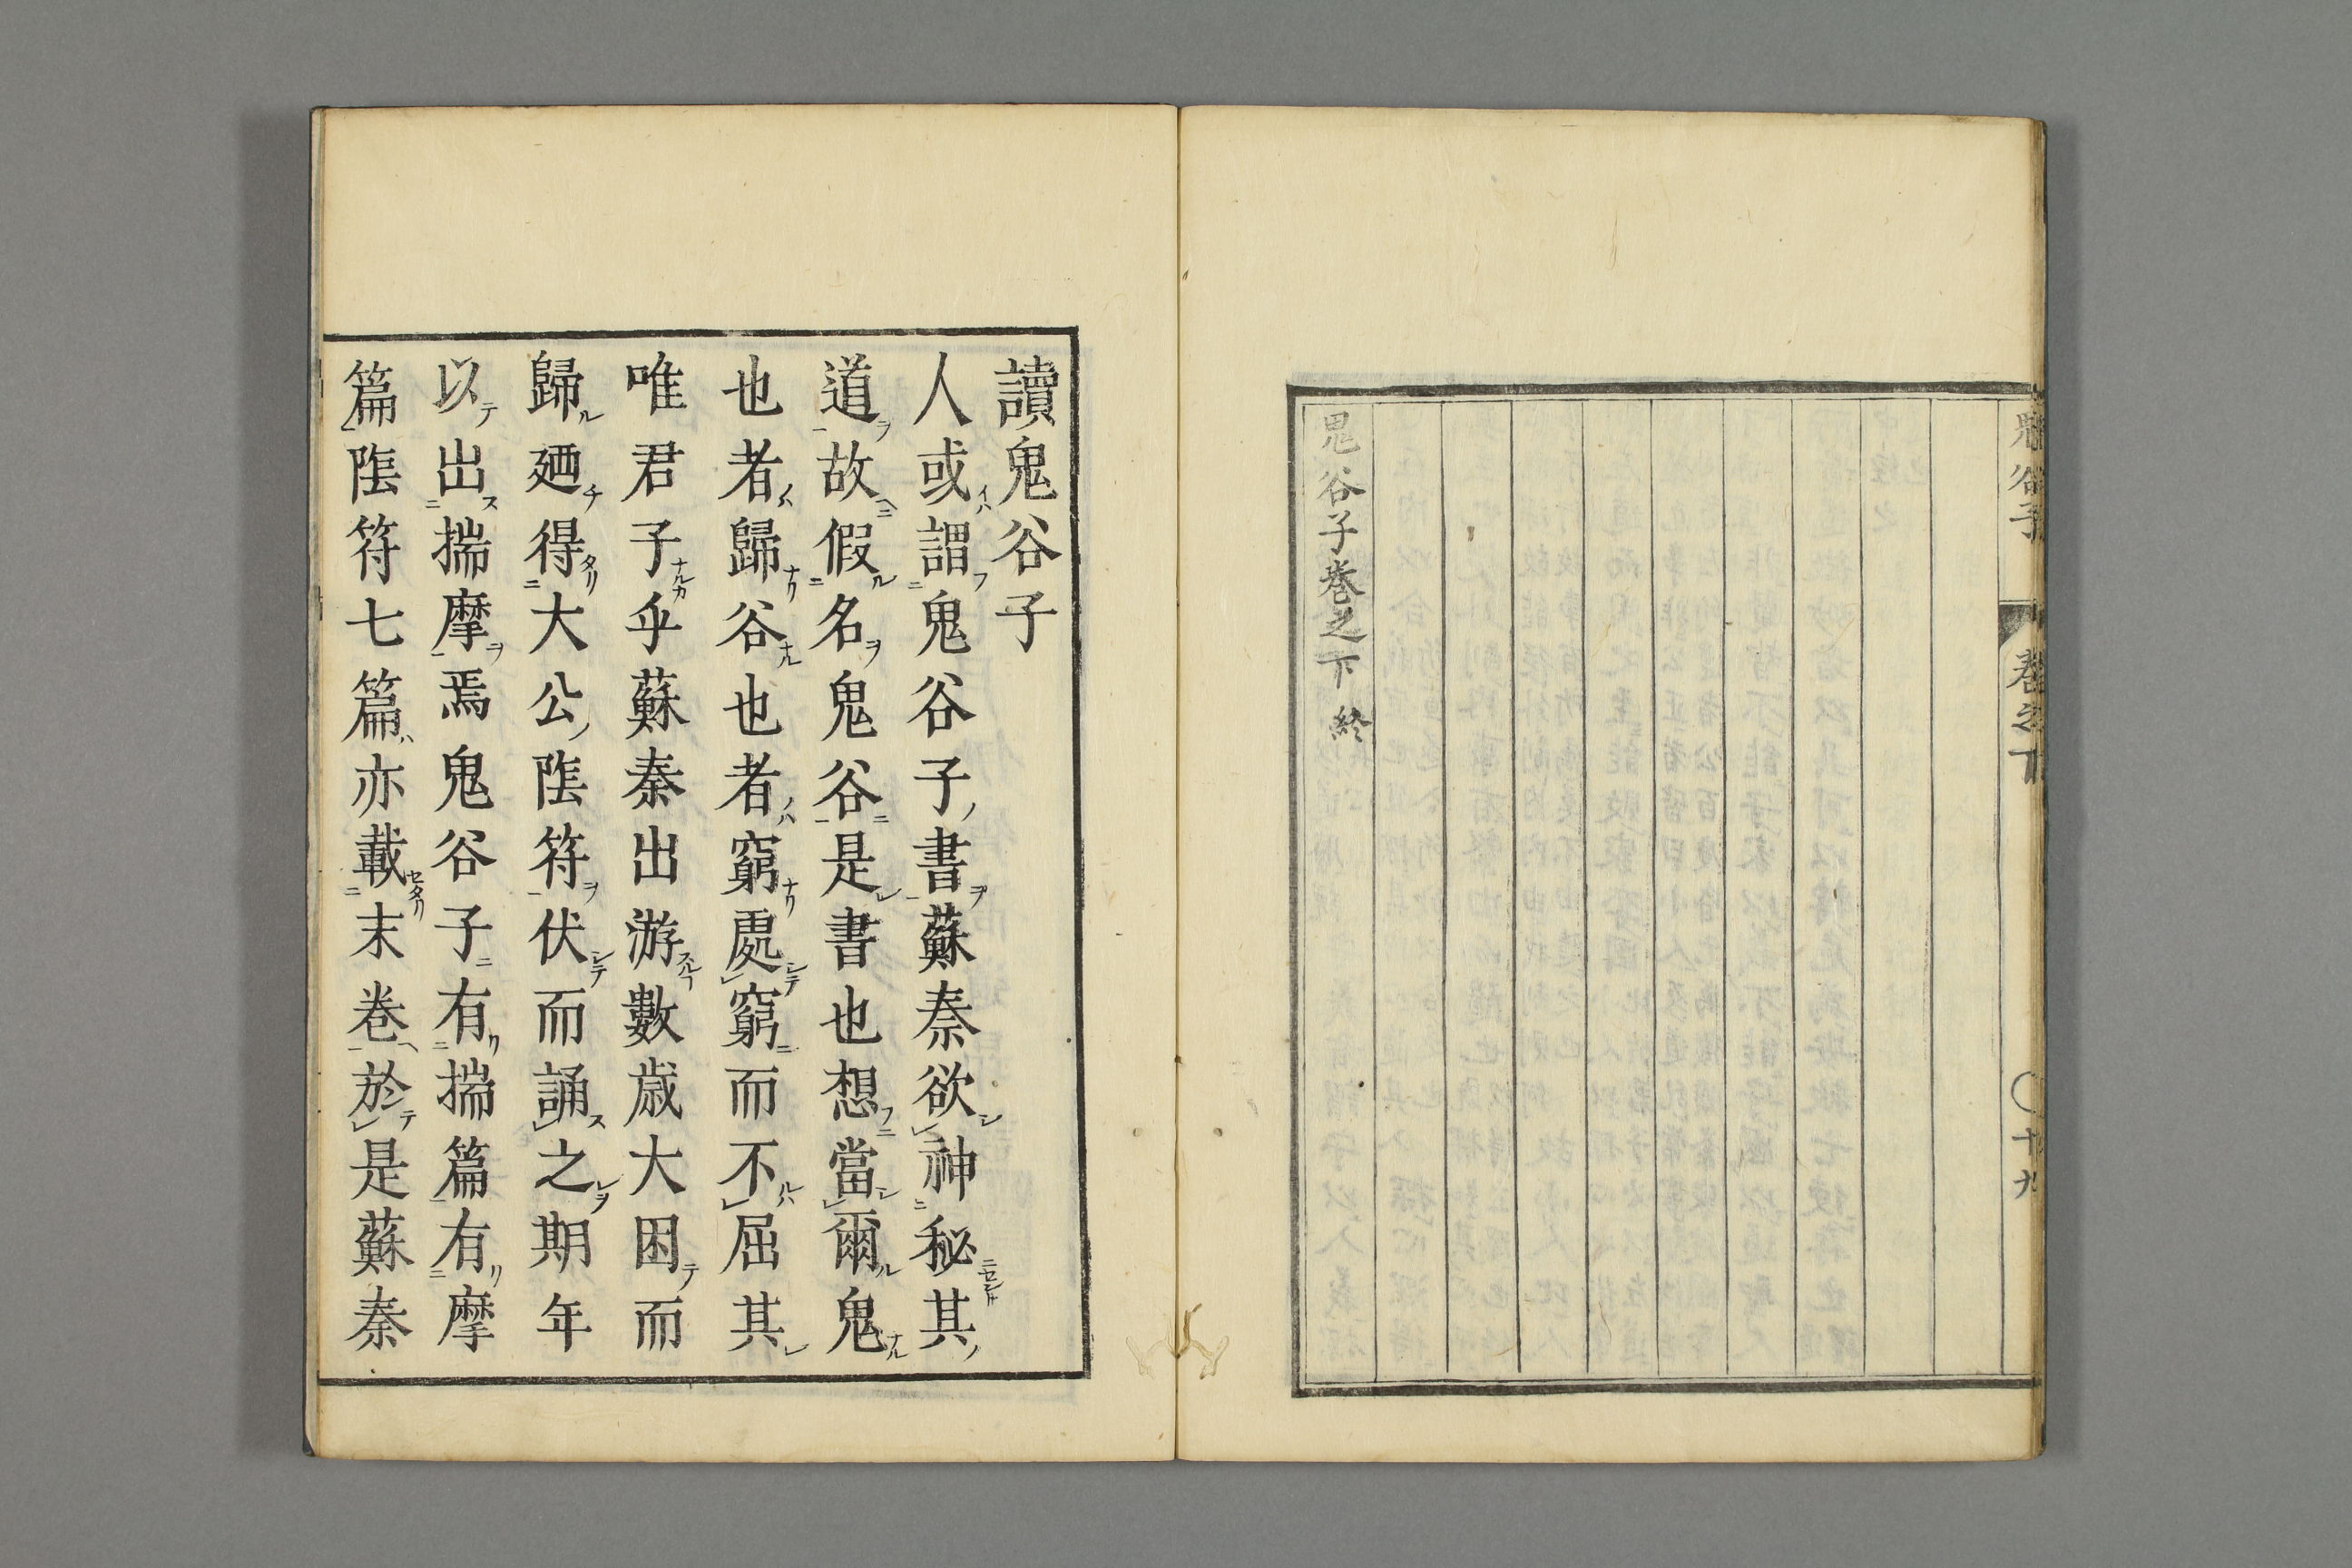 鬼谷子 卷之下 〇十九
鬼谷子卷之下 終
讀鬼谷子
人或謂鬼谷子書蘇秦欲神秘其
道故假名鬼谷是書也想當爾鬼
也者歸谷也者窮處窮而不屈其
唯君子乎蘇秦出游數歲大困而
歸廼得大公陰符伏而誦之期年
以出揣摩焉鬼谷子有揣篇有摩
篇陰符七篇亦載末卷於是蘇秦